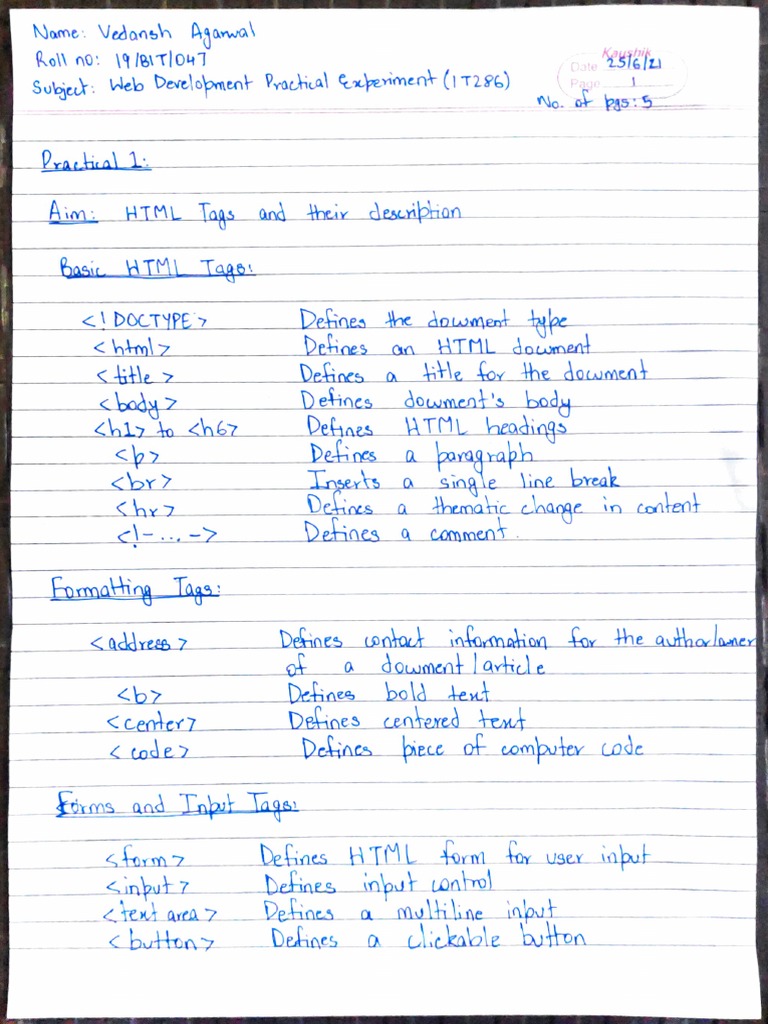 Name: Vedansh Agarwal
Roll no: 19/BIT/047
Subject: Web Development Practical Experiment (IT286)
Kaushik
Date 25/6/21
Page 1
No. of pgs: 5
Practical 1:
Aim: HTML Tags and their description
Basic HTML Tags:
<!DOCTYPE> Defines the document type
<html> Defines an HTML document
<title> Defines a title for the document
<body> Defines document's body
<h1> to <h6> Defines HTML headings
<p> Defines a paragraph
<br> Inserts a single line break
<hr> Defines a thematic change in content
<!-...-> Defines a comment.
Formatting Tags:
<address> Defines contact information for the author/owner
of a document/article
<b> Defines bold text
<center> Defines centered text
<code> Defines piece of computer code
Forms and Input Tags:
<form> Defines HTML form for user input
<input> Defines input control
<text area> Defines a multiline input
<button> Defines a clickable button